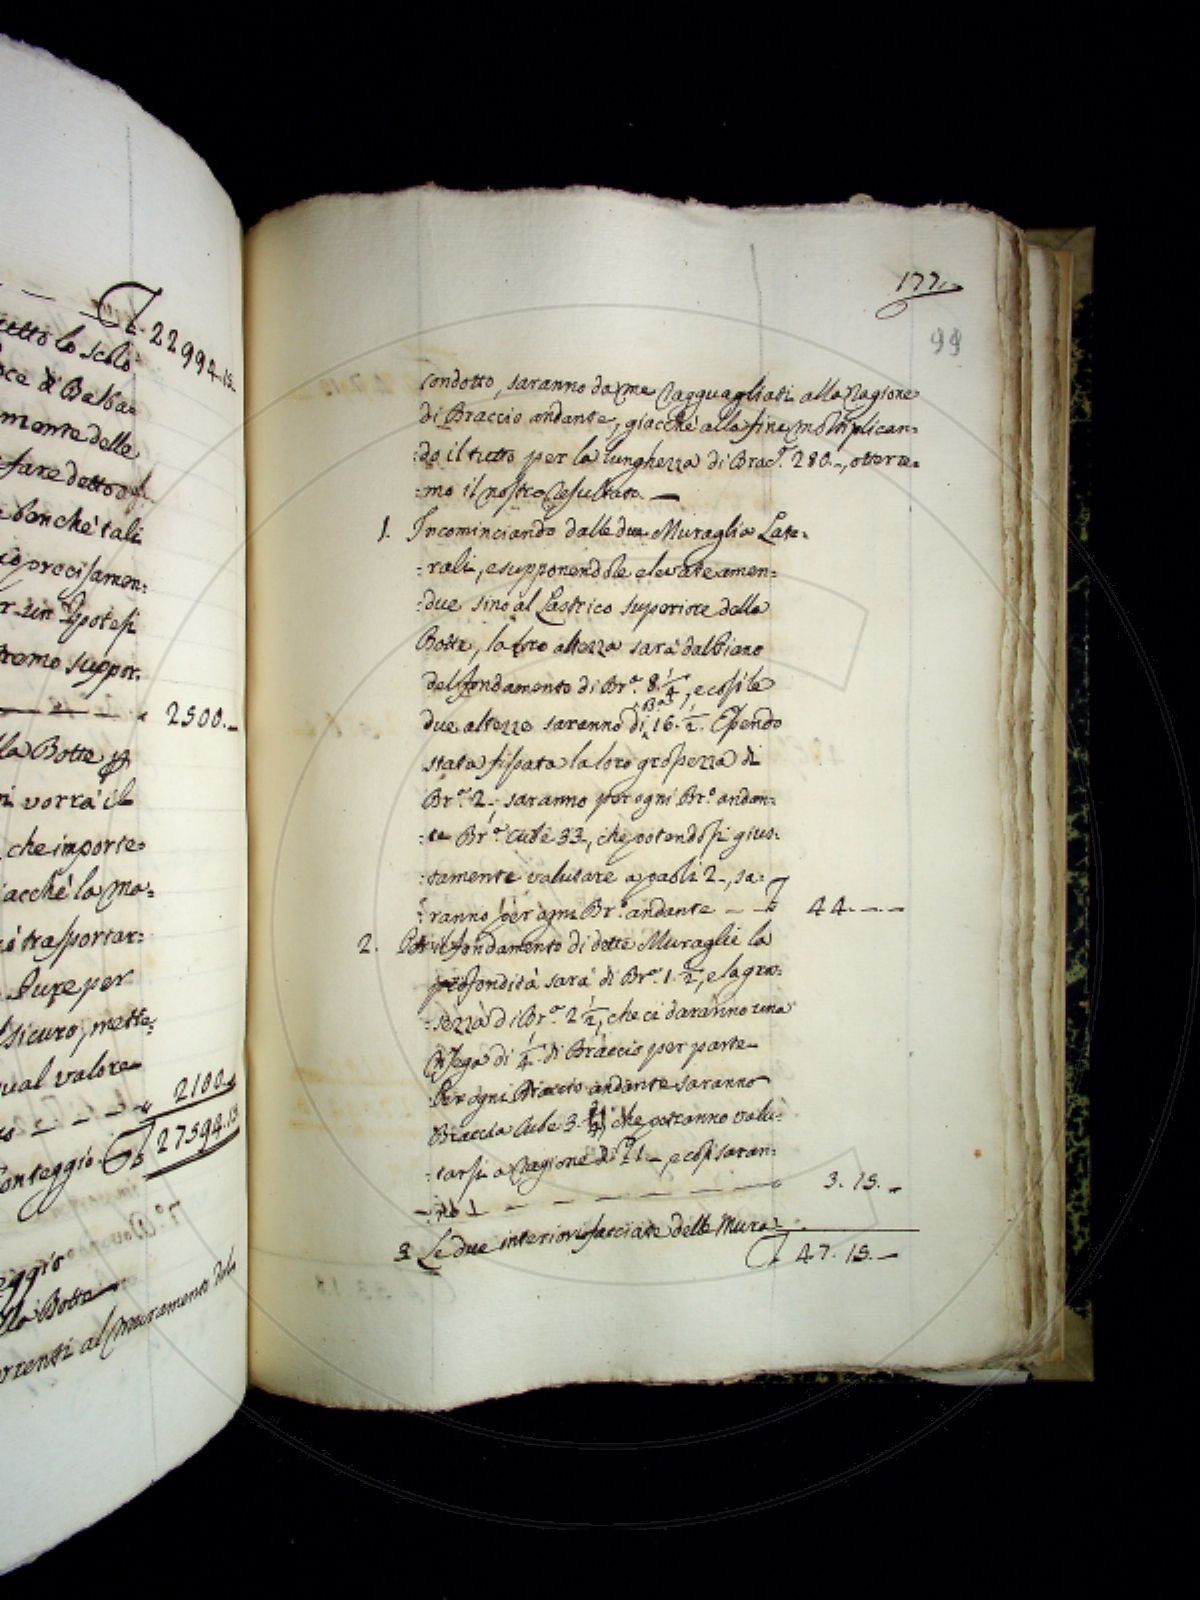 22994.15.
tutto lo scolo
di Balbai
mente della
fare detto
benchè tali
precisamen:
un Ipotesi
remo suppor.
2500.
la Botte
vorrà il
che importe:
giacchè la ma:
trasportar:
Pure per
sicuro, mette:
qual valore
2100.
Conteggio 27594.15
177.
99
condotto, saranno da me ragguagliati alla ragione
di Braccio andante, giacchè alla fine moltiplican:
:do il tutto per la lunghezza di Brac.ª 280., otterre:
:mo il nostro resultato. —
1. Incominciando dalle due Muraglie Late:
:rali, e supponendole elevate amen:
:due sino al Lastrico superiore della
Botte, la loro altezza sarà dal Piano
del fondamento di Br.ª 8. 1/4, e così le
due altezze saranno di Br.ª 16. 1/2. Essendo
stata fissata la loro grossezza di
Br.ª 2., saranno per ogni Br.º andan:
:te Br.ª cube 33, che potendosi gius:
:tamente valutare a paoli 2., sa:
:ranno per ogni Br.º andante — — 44. — —
2. Per il fondamento di dette Muraglie la
profondità sarà di Br.ª 1. 1/2, e la gros:
:sezza di Br.ª 2 1/2, che ci daranno una
Risega di 1/4 di Braccio per parte
Per ogni Braccio andante saranno
Braccia Cube 3. che potranno valu:
:tarsi a ragione di 1., e così saran:
:no — — — — — 3. 15. —
3. Le due interiori facciate delle Mura:
47. 15. —
eggio
la Botte
correnti al Muramento della